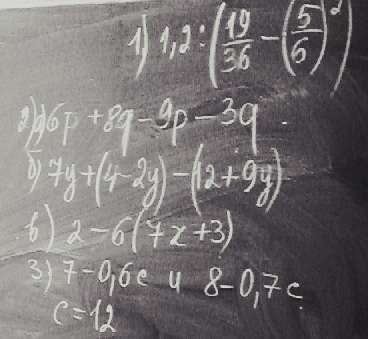 1) 1,2 : (19/36 - (5/6)²)
2) а) 6p + 8q - 9p - 3q
б) 7y + (4 - 2y) - (12 + 9y)
в) 2 - 6(7x + 3)
3) 7 - 0,6c и 8 - 0,7c
c = 12